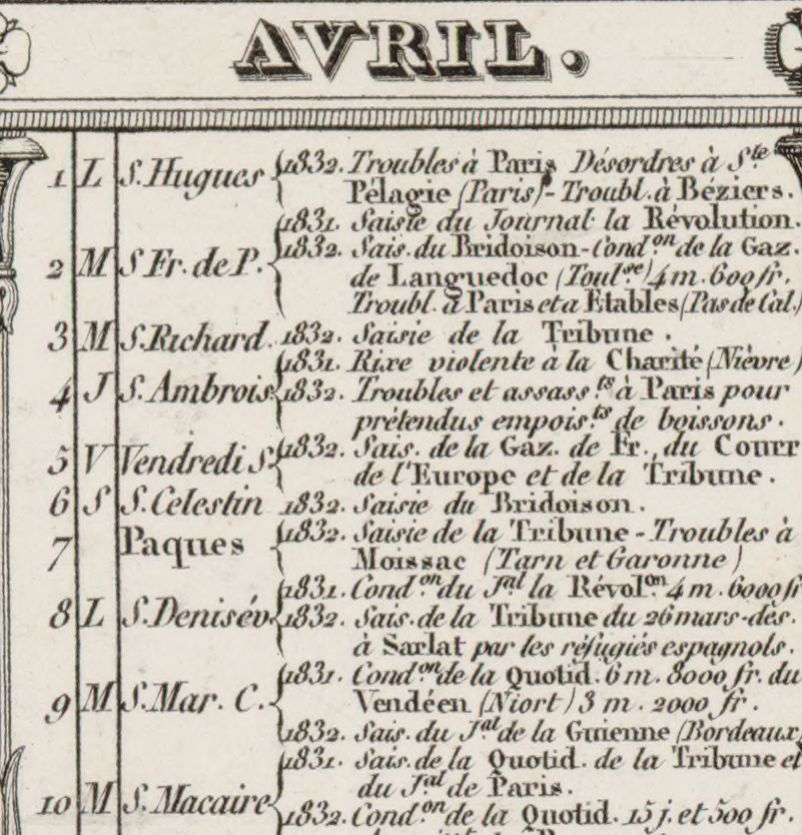 AVRIL.
1 L S. Hugues 1832. Troubles à Paris Désordres à Ste
Pélagie (Paris) - Troubl. à Béziers.
1831. Saisie du Journal la Révolution.
2 M S. Fr. de P. 1832. Sais. du Bridoison - Cond.on de la Gaz.
de Languedoc (Toul.se) 4 m. 600 fr.
Troubl. à Paris et a Etables (Pas de Cal.)
3 M S. Richard. 1832. Saisie de la Tribune.
1831. Rixe violente à la Charité (Nièvre)
4 J S. Ambrois 1832. Troubles et assass.ts à Paris pour
prétendus empois.ts de boissons.
5 V Vendredi S. 1832. Sais. de la Gaz. de Fr., du Courr
de l'Europe et de la Tribune.
6 S S. Célestin 1832. Saisie du Bridoison.
7 Paques 1832. Saisie de la Tribune - Troubles à
Moissac (Tarn et Garonne)
1831. Cond.on du Jal la Révol.on 4 m. 6000 fr
8 L S. Denis év. 1832. Sais. de la Tribune du 26 mars - dés.
à Sarlat par les réfugiés espagnols.
1831. Cond.on de la Quotid. 6 m. 8000 fr. du
9 M S. Mar. C. Vendéen (Niort) 3 m. 2000 fr.
1832. Sais. du Jal de la Guienne (Bordeaux)
1831. Sais. de la Quotid. de la Tribune et
du Jal de Paris.
10 M S. Macaire 1832. Cond.on de la Quotid. 15 j. et 500 fr.